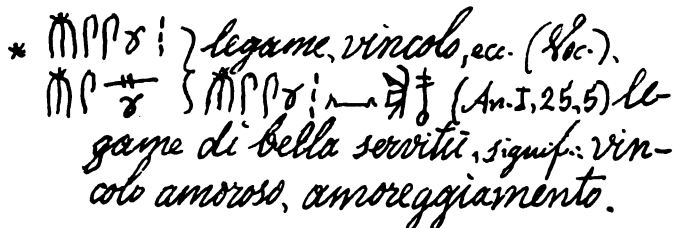 * } legame, vincolo, ecc. (Voc.),
(An. I, 25, 5) le-
game di bella servitù, signif.: vin-
colo amoroso, amoreggiamento.